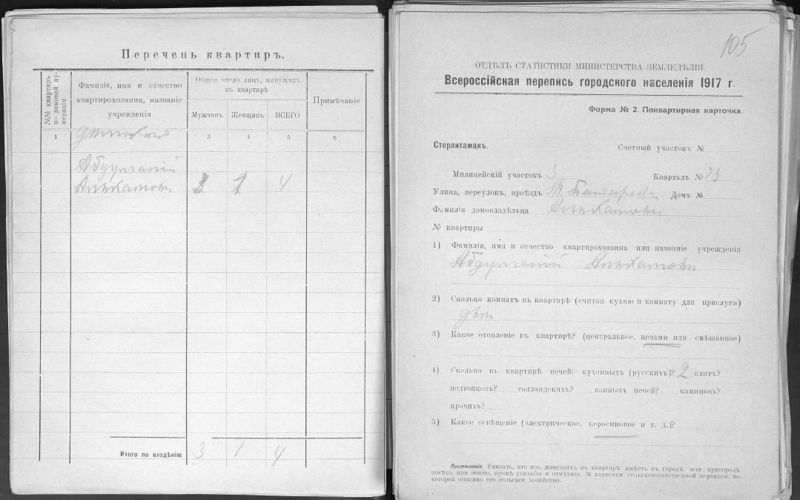 Перечень квартиръ.
№№ квартиръ по домовой нумерации
Фамилія, имя и отчество квартирохозяина, названіе учрежденія
Общее число лицъ, живущихъ въ квартирѣ
Мужчинъ
Женщинъ
ВСЕГО
Примѣчаніе
1
3
4
5
6
Абдулганій
1 4
Итого по владѣнію 3 1 4
105
ОТДѢЛЪ СТАТИСТИКИ МИНИСТЕРСТВА ЗЕМЛЕДѢЛІЯ.
Всероссійская перепись городского населенія 1917 г.
Форма № 2. Поквартирная карточка.
Стерлитамакъ. Счетный участокъ №
Милицейскій участокъ 3 Кварталъ № 73
Улица, переулокъ, проѣздъ Домъ №
Фамилія домовладѣльца
№ квартиры
1) Фамилія, имя и отчество квартирохозяина или названіе учрежденія
Абдулганій
2) Сколько комнатъ въ квартирѣ (считая кухню и комнату для прислуги)
двѣ
3) Какое отопленіе въ квартирѣ? (центральное, печами или смѣшанное)
4) Сколько въ квартирѣ печей: кухонныхъ (русскихъ)? 2 плитъ?
подтопковъ? голландскихъ? ванныхъ печей? каминовъ?
прочихъ?
5) Какое освѣщеніе (электрическое, керосиновое и т. д.)?
Примѣчаніе. Указать, кто изъ живущихъ въ квартирѣ имѣетъ въ городѣ или пригородѣ